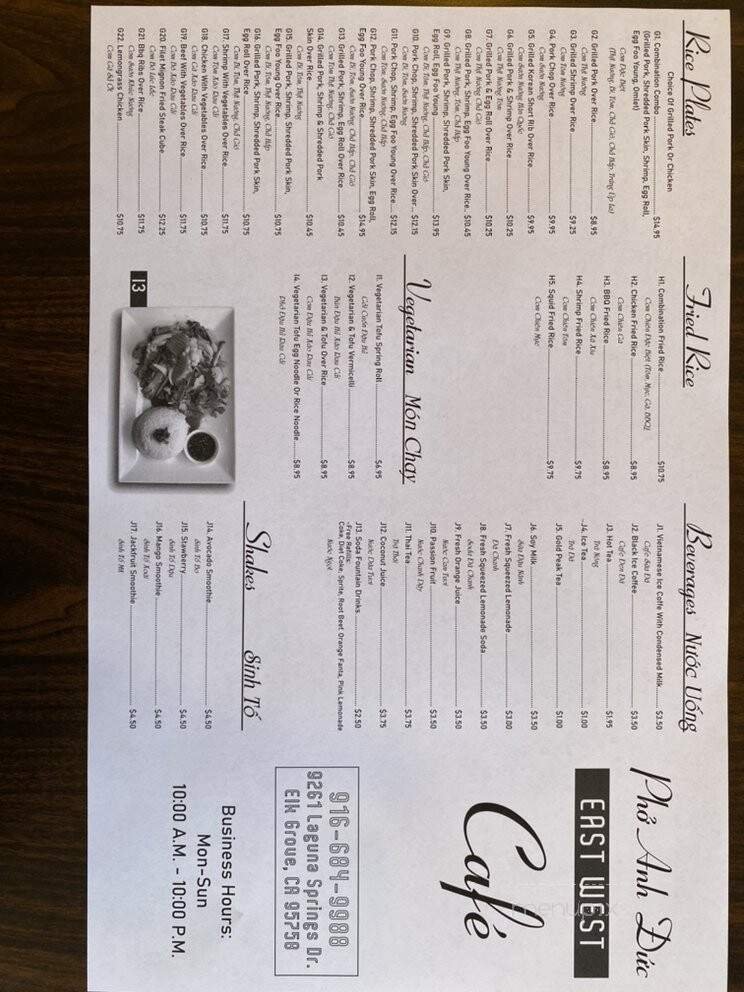 Rice Plates
Choice Of Grilled Pork Or Chicken
G1. Combination Combo $14.95
(Grilled Pork, Shredded Pork Skin, Shrimp, Egg Roll,
Egg Foo Young, Omlet)
Cơm Đặc Biệt
G2. Grilled Pork Over Rice $8.95
Cơm Thịt Nướng
G3. Grilled Shrimp Over Rice $9.25
Cơm Tôm Nướng
G4. Pork Chop Over Rice $9.95
Cơm Sườn Nướng
G5. Grilled Korean Short Rib Over Rice $9.95
G6. Grilled Pork & Shrimp Over Rice $10.25
Cơm Thịt Nướng Tôm
G7. Grilled Pork & Egg Roll Over Rice $10.25
Cơm Thịt Nướng, Chả Giò
G8. Grilled Pork, Egg Foo Young Over Rice $10.45
G9. Grilled Pork, Shrimp, Shredded Pork Skin,
Egg Roll, Egg Foo Young $13.95
G10. Pork Chop, Shrimp, Shredded Pork Skin Over $12.15
G11. Pork Chop, Shrimp, Egg Foo Young Over Rice $12.15
G12. Pork Chop, Shrimp, Shredded Pork Skin, Egg Roll,
Egg Foo Young Over Rice $14.95
G13. Grilled Pork, Shrimp, Egg Roll Over Rice $10.45
G14. Grilled Pork, Shrimp & Shredded Pork
Skin Over Rice $10.45
G15. Grilled Pork, Shrimp, Shredded Pork Skin,
Egg Foo Young Over Rice $10.75
G16. Grilled Pork, Shrimp, Shredded Pork Skin,
Egg Roll Over Rice $10.75
G17. Shrimp With Vegetables Over Rice $11.75
Cơm Tôm Xào Dau Cãi
G18. Chicken With Vegetables Over Rice $10.75
Cơm Gà Xào Dau Cãi
G19. Beef With Vegetables Over Rice $11.75
Cơm Bò Xào Dau Cãi
G20. Filet Mignon Fried Steak Cube $12.25
Cơm Bò Lúc Lắc
G21. Bbq Ribs Over Rice $11.75
G22. Lemongrass Chicken $10.75
Cơm Gà Xả Ớt
Fried Rice
H1. Combination Fried Rice $10.75
Cơm Chiên Đặc Biệt (Tôm, Mực, Gà, BBQ)
H2. Chicken Fried Rice $8.95
Cơm Chiên Gà
H3. BBQ Fried Rice $8.95
Cơm Chiên Xá Xíu
H4. Shrimp Fried Rice $9.75
Cơm Chiên Tôm
H5. Squid Fried Rice $9.75
Cơm Chiên Mực
Vegetarian Món Chay
I1. Vegetarian Tofu Spring Roll $6.95
Gỏi Cuốn Đậu Hũ
I2. Vegetarian & Tofu Vermicelli $8.95
Bún Đậu Hũ Xào Dau Cãi
I3. Vegetarian & Tofu Over Rice $8.95
Cơm Đậu Hũ Xào Dau Cãi
I4. Vegetarian Tofu Egg Noodle Or Rice Noodle $8.95
Phở Đậu Hũ Dau Cãi
I3
Beverages Nước Uống
J1. Vietnamese Ice Coffe With Condensed Milk $3.50
Cafe Sữa Đá
J2. Black Ice Coffee $3.50
Cafe Đen Đá
J3. Hot Tea $1.95
Trà Nóng
J4. Ice Tea $1.00
Trà Đá
J5. Gold Peak Tea $1.00
J6. Soy Milk $3.50
Sữa Đậu Nành
J7. Fresh Squeezed Lemonade $3.00
Đá Chanh
J8. Fresh Squeezed Lemonade Soda $3.50
Soda Đá Chanh
J9. Fresh Orange Juice $3.50
Nước Cam Tươi
J10. Passion Fruit $3.50
Nước Chanh Dây
J11. Thai Tea $3.75
Trà Thái
J12. Coconut Juice $3.75
Nước Dừa Tươi
J13. Soda Fountain Drinks $2.50
-Free Refills-
Coke, Diet Coke, Sprite, Root Beet Orange Fanta, Pink Lemonade
Nước Ngọt
Shakes Sinh Tố
J14. Avocado Smoothie $4.50
Sinh Tố Bơ
J15. Stawberry $4.50
Sinh Tố Dâu
J16. Mango Smoothie $4.50
Sinh Tố Xoài
J17. Jackfruit Smoothie $4.50
Sinh Tố Mít
Phở Anh Đức
EAST WEST
Café
916-684-9988
9261 Laguna Springs Dr.
Elk Grove, CA 95758
Business Hours:
Mon-Sun
10:00 A.M. - 10:00 P.M.
menupix